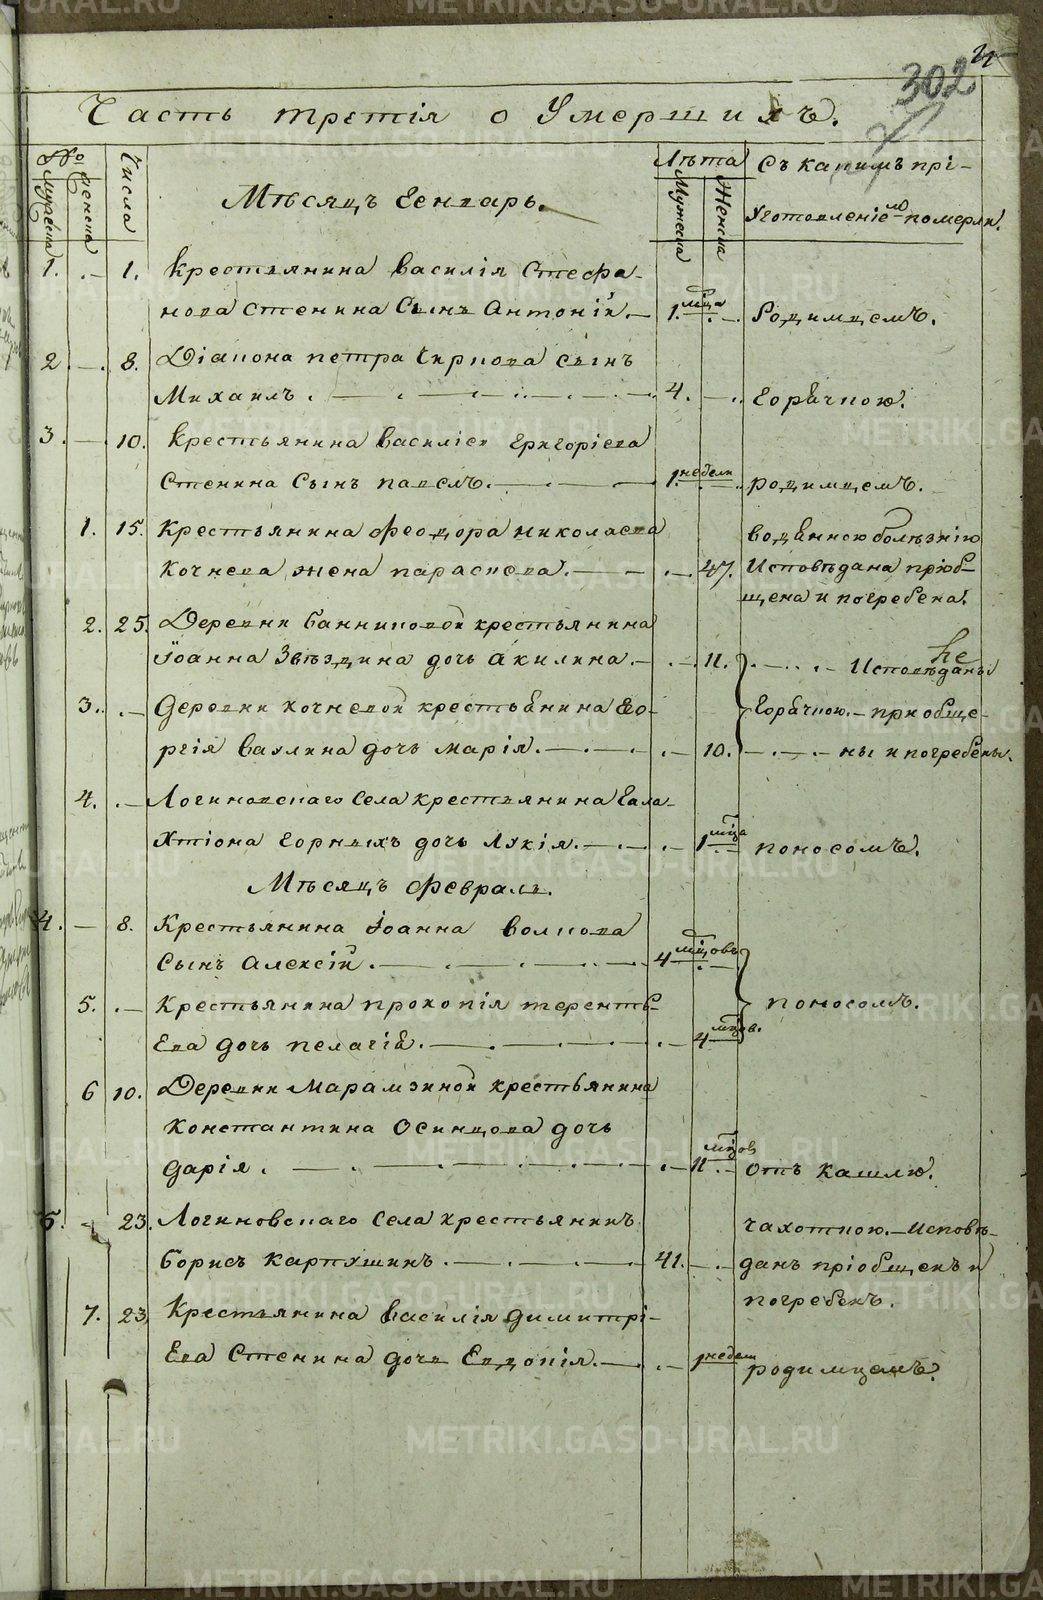 METRIKI.GASO-URAL.RU
302
Часть третія о Умершихъ.
№
Мужеска
Женска
Числа
Мѣсяцъ Генварь.
Лѣта
Мужеска
Женска
Съ какимъ прі-
уготовленіемъ померли.
1. 1. Крестьянина Василія Стефа-
нова Стенина Сынъ Антоній. 1. мца Родимцемъ.
2 8. Діакона Петра Сын
Михаилъ. 4. Горячкою.
3. 10. Крестьянина Василіея Григоріева
Стенина Сынъ Павелъ. 1. недели родимцемъ.
1. 15. Крестьянина Феодора Николаева
Кочнева жена Параскева. 47. водяною болѣзнію
Исповѣдана пріоб-
щена и погребена.
2. 25. Деревни Банниковой крестьянина
Іоанна Звѣздина дочь Акилина. 11. не Исповѣданы
3. Деревни Кочневой крестьянина Гео-
ргія Ваулина дочь Марія. 10. Горячкою. приобще-
ны и погребены.
4. Логиновскаго Села крестьянина Гала-
ктіона Горныхъ дочь Лукія. 1 мца поносомъ.
Мѣсяцъ Февраль.
4. 8. Крестьянина Іоанна Волкова
Сынъ Алексій. 4 мцовъ
5. Крестьянина Прокопія Теренть-
Ева дочь Пелагія. 4 мцов. поносомъ.
6 10. Деревни Марамзиной крестьянина
Константина Осинцова дочь
Дарія. 11 мцов отъ кашлю.
5. 23. Логиновскаго Села крестьянинъ
Борисъ Карпушинъ. 41. чахоткою. Исповѣ-
данъ пріобщенъ и
погребенъ.
7. 23. Крестьянина Василія Димитрі-
Ева Стенина дочь Евдокія. 1 недели родимцемъ.